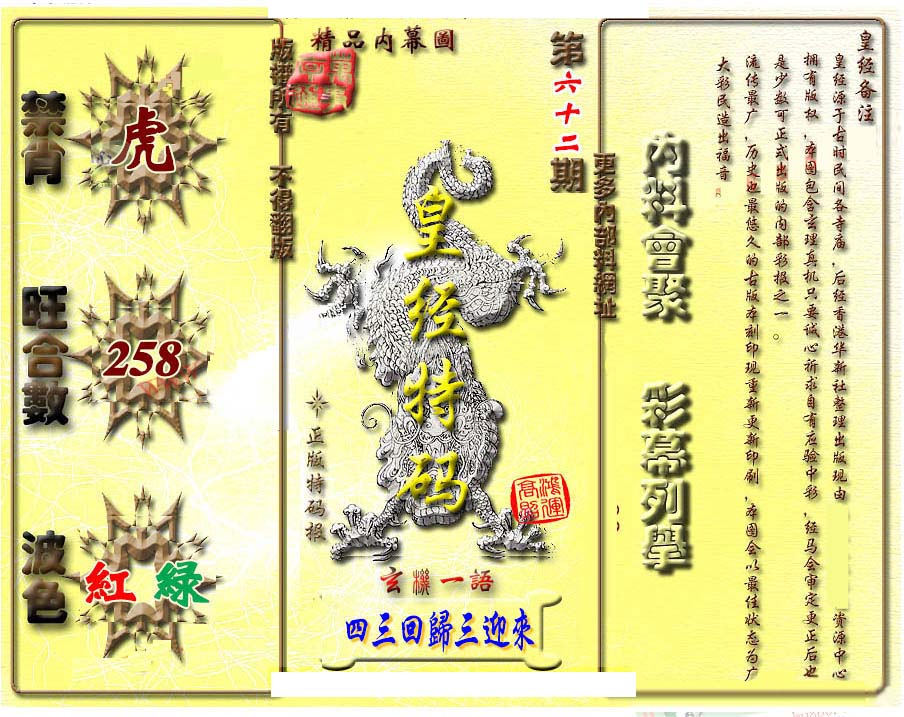 精品内幕圖
版權所有 不得翻版
第六十二期
更多內部料網址
禁肖
虎
旺合數
258
波色
紅 綠
皇经特码
正版特码报
鴻運高照
玄機一語
四三回歸三迎來
內料會聚
彩幕列舉
皇经备注
皇经源于古时民间各寺庙，后经香港华新社整理出版现由 资源中心
拥有版权，本图包含玄理真机只要诚心祈求自有应验中彩，经马会审定更正后也
是少数可正式出版的内部彩报之一。
流传最广，历史也最悠久的古版本刻印现重新更新印刷，本图会以最佳状态为广
大彩民造出福音